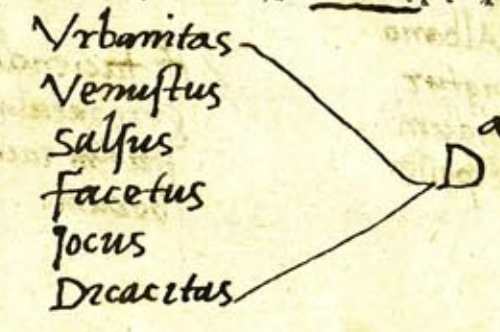 Vrbanitas
Venustus
Salsus
Facetus
Jocus
Dicacitas
D